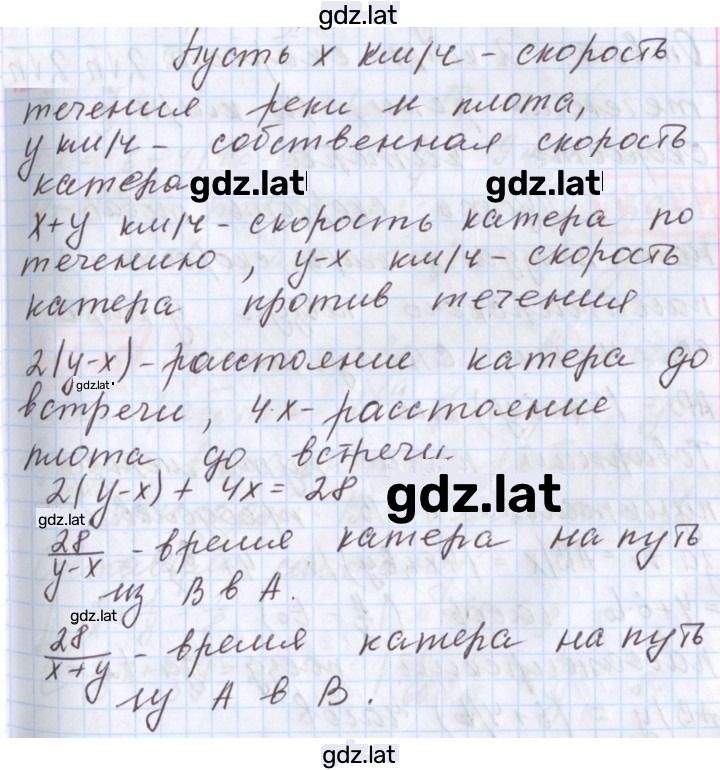 gdz.lat
Пусть x км/ч - скорость
течения реки и плота,
y км/ч - собственная скорость
катера gdz.lat gdz.lat
x+y км/ч - скорость катера по
течению, y-x км/ч - скорость
катера против течения
2(y-x) - расстояние катера до
gdz.lat
встречи, 4·x - расстояние
плота до встречи.
2(y-x) + 4x = 28 gdz.lat
gdz.lat
28/(y-x) - время катера на путь
из B в A.
gdz.lat
28/(x+y) - время катера на путь
из A в B.
gdz.lat